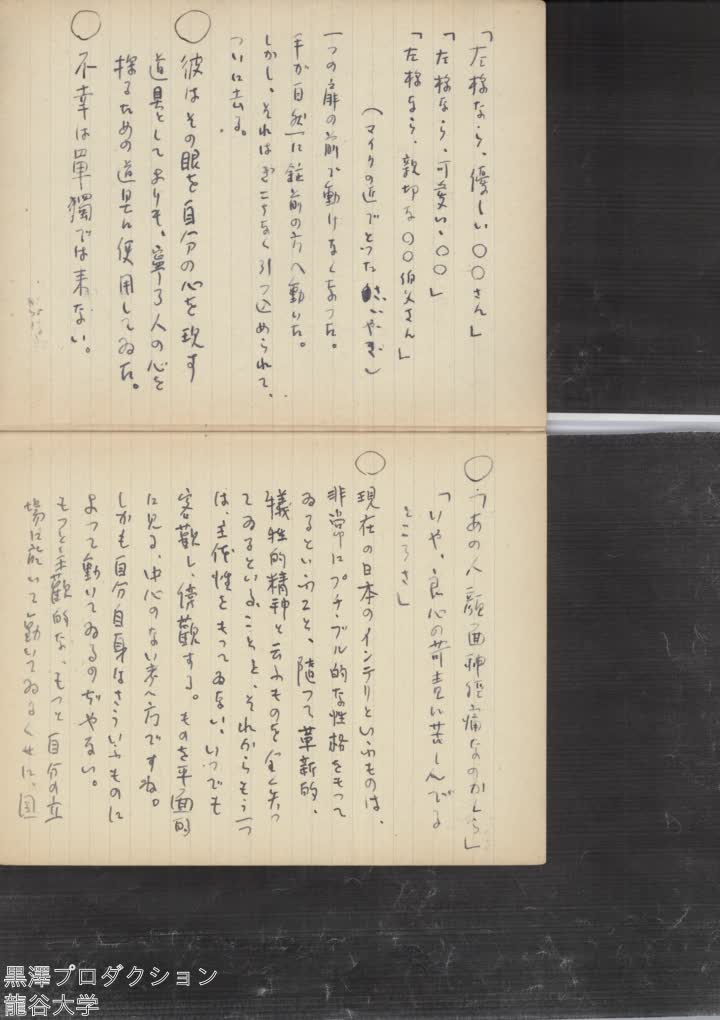 「左様なら、優しい〇〇さん」
「左様なら、可愛い、〇〇」
「左様なら、親切な〇〇伯父さん」
(マイクの近でとった
一つの扉の前で動けなくなつた。
手が自然に錠前の方へ動いた。
しかし、それはぎこちなく引つ込められて、
ついに去る。
〇 彼はその眼を自分の心を現す
道具としてよりも、寧ろ人の心を
探るための道具に使用してゐた。
〇 不幸は単獨では来ない。
〇 「あの人顔面神経痛なのかしら」
「いや、良心の苛責に苦しんでる
ところさ」
〇 現在の日本のインテリといふものは、
非常にプチ・ブル的な性格をもつて
ゐるといふこと、随つて革新的、
犠牲的精神と云ふものを全く失つ
てゐるといふことと、それからもう一つ
は、主体性をもつてゐない、いつでも
客觀し、傍觀する。ものを平面的
に見る、中心のない考へ方ですね。
しかも自分自身はさういふものに
よつて動いてゐるのぢやない。
もつと主觀的な、もつと自分の立
場に於いて動いてゐるくせに、
黒澤プロダクション
龍谷大学